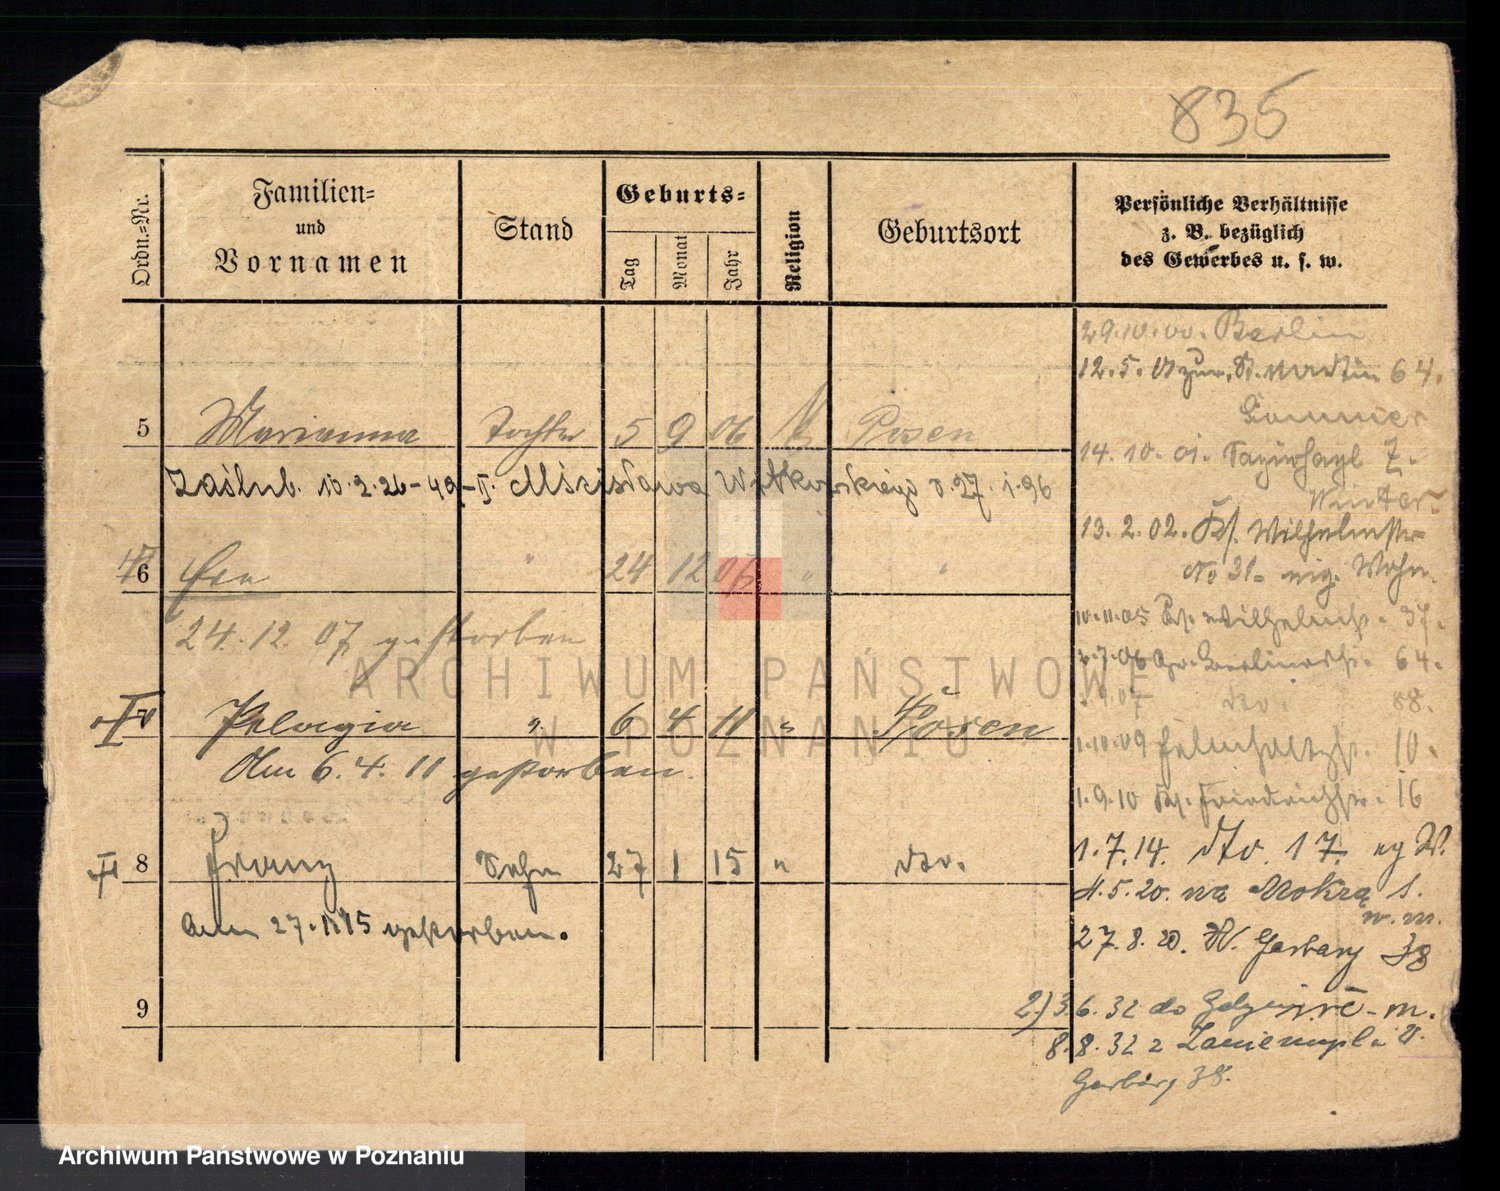 835
Ordn.=Nr.
Familien=
und
Vornamen
Stand
Geburts=
Tag
Monat
Jahr
Religion
Geburtsort
Persönliche Verhältnisse
z. B. bezüglich
des Gewerbes u. s. w.
29.10.00. Berlin
12.5.01 zur. St. Martin 64.
Sommer
5 Marianna Tochter 5 9 06 Posen
14.10.01.
Winter
Zaślub. 10.2.26 Mścisława Witkowskiego 27.1.96
13.2.02. Wilhelmstr
No 31. Wohn.
6 Eva " 24 12 07 " "
10.11.05 Wilhelmstr. 37.
24.12.07 gestorben
2.7.06 Gr. Berlinerstr. 64.
07 dto. 88.
7 Pelagia " 6 4 11 " Posen
1.10.09 10.
Am 6.4.11 gestorben.
1.9.10 Friedrichstr. 16
8 Franz Sohn 27 1 15 " dto.
1.7.14. dto. 17
11.5.20. na Mokrą 1.
w. m.
Am 27.1.15 gestorben.
27.8.20. W. Garbary 38
9
2.) 3.6.32 do
8.8.32 z Zaniemyśla
Garbary 38.
ARCHIWUM PAŃSTWOWE
W POZNANIU
Archiwum Państwowe w Poznaniu